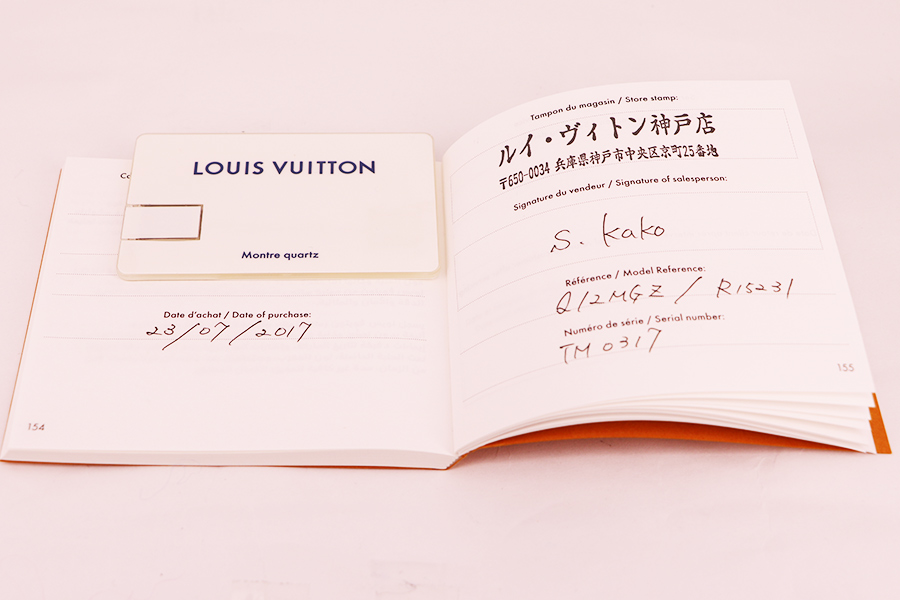 LOUIS VUITTON
Montre quartz
Date d'achat / Date of purchase:
23/07/2017
154
Tampon du magasin / Store stamp:
ルイ・ヴィトン神戸店
〒650-0034 兵庫県神戸市中央区京町25番地
Signature du vendeur / Signature of salesperson:
S. Kako
Référence / Model Reference:
Q12MGZ / R15231
Numéro de série / Serial number:
TM0317
155